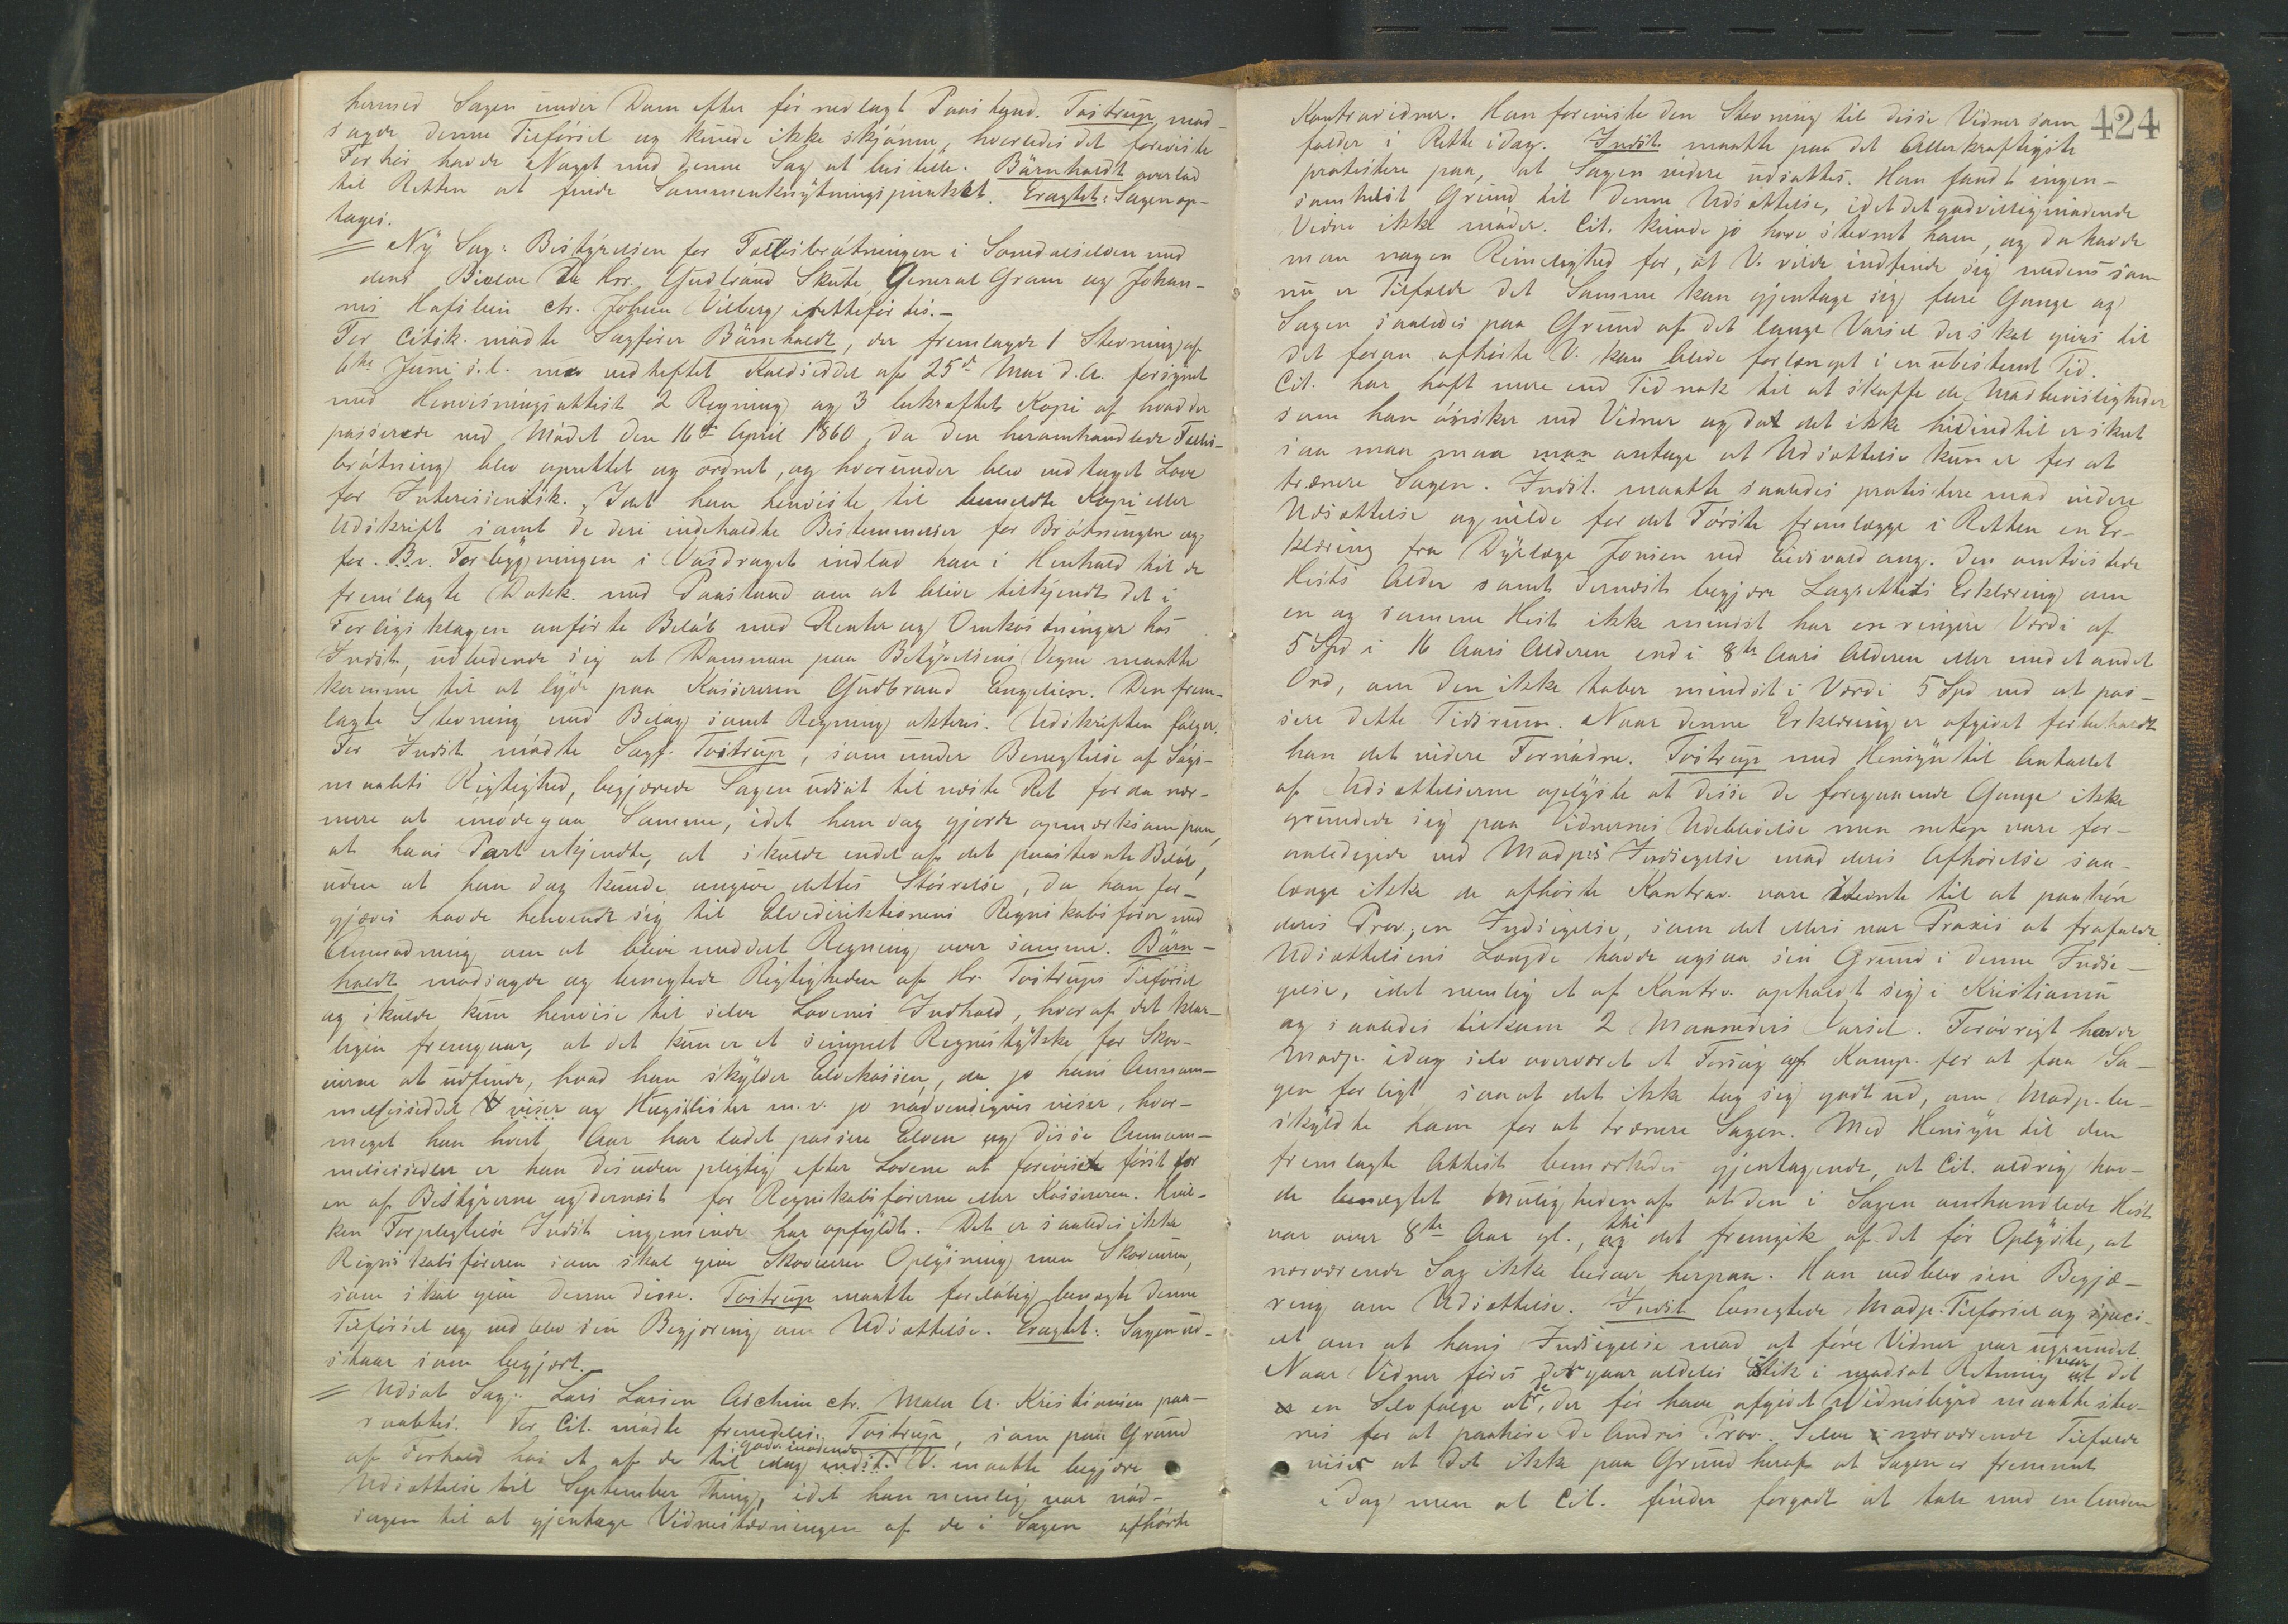 hermed Sagen under Dom efter før nedlagt Paastand. Tostrup mod-
sagde denne Tilførsel og kunde ikke skjønne, hvorledes det foreviste
Forhør havde Noget med denne Sag at bestille. Bärnholdt overlod
til Retten at finde Sammenknytningspunktet. Eragtet: Sagen op-
tages.
Ny Sag: Bestyrelsen for Fællesbrøtningen i Somdalselven med
dens Bielve De Hrr. Gudbrand Skute, General Gram og Johan-
nes Hafslien ctr. Johan Viberg irettefördes.-
For Citsk. mødte Sagfører Bärnholdt, der fremlagde 1 Stevning af
6te Juni s.l. med vedheftet Kaldseddel af 25de Mai d.A. forsynet
med Henvisningsattest 2 Regning og 3 bekræftet Kopi af hvad der
passerede ved Mødet den 16de April 1860, da den heromhandlede Fælles-
brøtning blev oprettet og ordnet, og hvorunder blev vedtaget Love
for Interessentsk. Idet han henviste til bemeldte Kopi eller
Udskrift samt de deri indeholdte Bestemmelser for Brøtningen og
for Bv. Forbygningen i Vasdraget indlod han i Henhold til de
fremlagte Dokk. med Paastand om at blive tilkjendt det i
Forligsklagen anførte Beløb med Renter og Omkostninger hos
Indst., udbedende sig at Dommen paa Bestyrelsens Vegne maatte
komme til at lyde paa Kassereren Gudbrand Engelien. Den frem-
lagte Stevning med Bilag samt Regning akteres. Udskriften følger.
For Indst mødte Sagf. Tostrup, som under Benegtelse af Søgs-
maalets Rigtighed, begjærede Sagen udsat til næste Ret for da nær-
mere at imødegaa Samme, idet han dog gjorde opmærksom paa,
at hans Part erkjendte, at skulde endel af det paastevnte Beløb,
uden at han dog kunde angive dettes Størrelse, da han for-
gjæves havde henvendt sig til Elvedirektionens Regnskabsfører med
Anmodning om at blive meddelt Regning over samme. Bärn-
holdt modsagde og benegtede Rigtigheden af Hr. Tostrups Tilførsel
og skulde kun henvise til selve Lovenes Indhold, hvoraf det klar-
ligen fremgaar, at det kun er et simpelt Regnestykke for Skov-
eierne at udfinde, hvad han skylder Elvekassen, da jo hans Anmeld-
melsesseddel viser og Hugstlister m.v. jo nødvendigvis viser, hvor-
meget han hvert Aar har ladet passere Elven og disse Anmeld-
melsessedler er han desuden pligtig efter Lovene at forevise først for
en af Bestyrerne og dernæst for Regnskabsførerne eller Kassereren. Hvil-
ken Forpligtelse Indst ingensinde har opfyldt. Det er saaledes ikke
Regnskabsføreren som skal give Skoveieren Oplysning men Skoveieren,
som skal give denne disse. Tostrup maatte foreløbig benegte denne
Tilførsel og vedblev sin Begjæring om Udsættelse. Eragtet: Sagen ud-
staar som begjært.
Udsat Sag: Lars Larsen Aschim ctr. Maler A. Kristiansen paa-
raabtes. For Cit. mødte fremdeles Tostrup, som paa Grund
af Forhold hos et af de til godv. mødende idag indst. V. maatte begjære
Udsættelse til September Thing, idet han nemlig var nød-
sagen til at gjentage Vidnestævningen af de i Sagen afhørte
424
Kontravidner. Han foreviste den Stevning til disse Vidner som
falder i Rette idag. Indst. maatte paa det Allerkraftigste
protestere paa, at Sagen videre udsattes. Han fandt ingen-
somhelst Grund til denne Udsættelse, idet det godvilligmødende
Vidne ikke møder. Cit. kunde jo have stevnet ham, og da havde
man nogen Rimelighed for, at V. vilde indfinde sig medens som
nu er Tilfælde det Samme kan gjentage sig flere Gange og
Sagen saaledes paa Grund af det lange Varsel der skal gives til
det foran afhørte V. kan blive forlænget i en ubestemt Tid.
Cit. har haft mere end Tid nok til at skaffe de Modbevisligheder
som han ønsker ved Vidner og da det ikke hidindtil er skeet
saa maa man antage at Udsættelse kun er for at
trænere Sagen. Indst. maatte saaledes protestere mod videre
Udsættelse og vilde for det Første fremlægge i Retten en Er-
klæring fra Dyrlæge Jonsen ved Eidsvold ang. den omtvistede
Hests Alder samt dernæst begjære Lagrettets Erklæring om
en og samme Hest ikke mindst har en ringere Værdi af
5 Spd i 16 Aars Alderen end i 8de Aars Alderen eller med et andet
Ord, om den ikke taber mindst i Værdi 5 Spd ved at pas-
sere dette Tidsrum. Naar denne Erklæring er afgivet forbeholdt
han det videre Fornødne. Tostrup med Hensyn til Antallet
af Udsættelserne oplyste at disse de foregaaende Gange ikke
grundede sig paa Vidnernes Udeblivelse men netop vare for-
anledigede ved Modp's Indsigelse mod deres Afhørelse saa-
længe ikke de afhørte Kontrav. vare stevnte til at paahøre
deres Prov., en Indsigelse, som det ellers var Praxis at frafalde.
Udsættelsens Længde havde ogsaa sin Grund i denne Indsi-
gelse, idet nemlig et af Kontrv. opholdt sig i Kristiania
og saaledes tilkom 2 Maaneders Varsel. Forøvrigt havde
Modp. idag selv overværet et Forsøg af Komp. for at faa Sa-
gen forligt saa at det ikke tog sig godt ud, om Modp. be-
skyldte ham for at trænere Sagen. Med Hensyn til den
fremlagte Attest bemærkedes gjentagende, at Cit. aldrig hav-
de benægtet Muligheden af at den i Sagen omhandlede Hest
var over 8te Aar gl., thi det fremgik af det før Oplyste, at
nærværende Sag ikke beroede herpaa. Han vedblev sin Begjæ-
ring om Udsættelse. Indst. benegtede Modp. Tilførsel og speci-
elt om at hans Indsigelse mod at føre Vidner var ugrundet.
Naar Vidner føres der gaar aldeles stik i modsat Retning var det
en Selvfølge at de, der før have afgivet Vidnesbyrd maatte stev-
nes for at paahøre de Andres Prov. Selve nærværende Tilfælde
viser at det ikke paa Grund heraf at Sagen er fremmet
i Dag men at Cit. finder forgodt at tale med en Anden